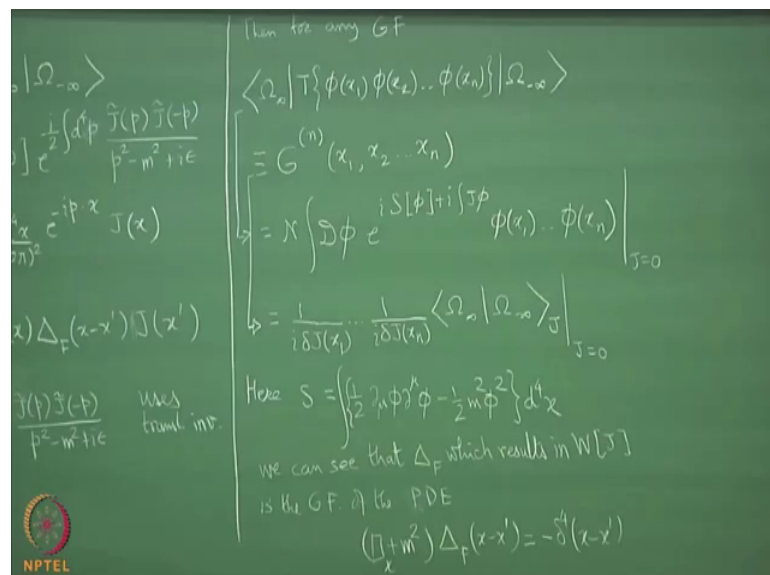 |Ω₋∞⟩
] e^{i/2 ∫d⁴p J̃(p) J̃(-p) / p²-m²+iϵ}
x / (2π)² e^{-ip·x} J(x)
x) Δ_F(x-x') J(x')
J̃(p) J̃(-p) / p²-m²+iϵ uses transl inv.
Then for any GF
⟨Ω_∞|T{ϕ(x₁) ϕ(x₂)..ϕ(xₙ)}|Ω₋∞⟩
≡ G^{(n)}(x₁, x₂ ... xₙ)
= N ∫ Dϕ e^{iS[ϕ]+i∫Jϕ} ϕ(x₁)..ϕ(xₙ)|_{J=0}
= 1/iδJ(x₁) ... 1/iδJ(xₙ) ⟨Ω_∞|Ω₋∞⟩_J|_{J=0}
Here S = ∫{1/2 ∂_μϕ∂^μϕ - 1/2 m²ϕ²} d⁴x
we can see that Δ_F which results in W[J]
is the GF. of the PDE
(□_x+m²) Δ_F(x-x') = -δ⁴(x-x')
NPTEL